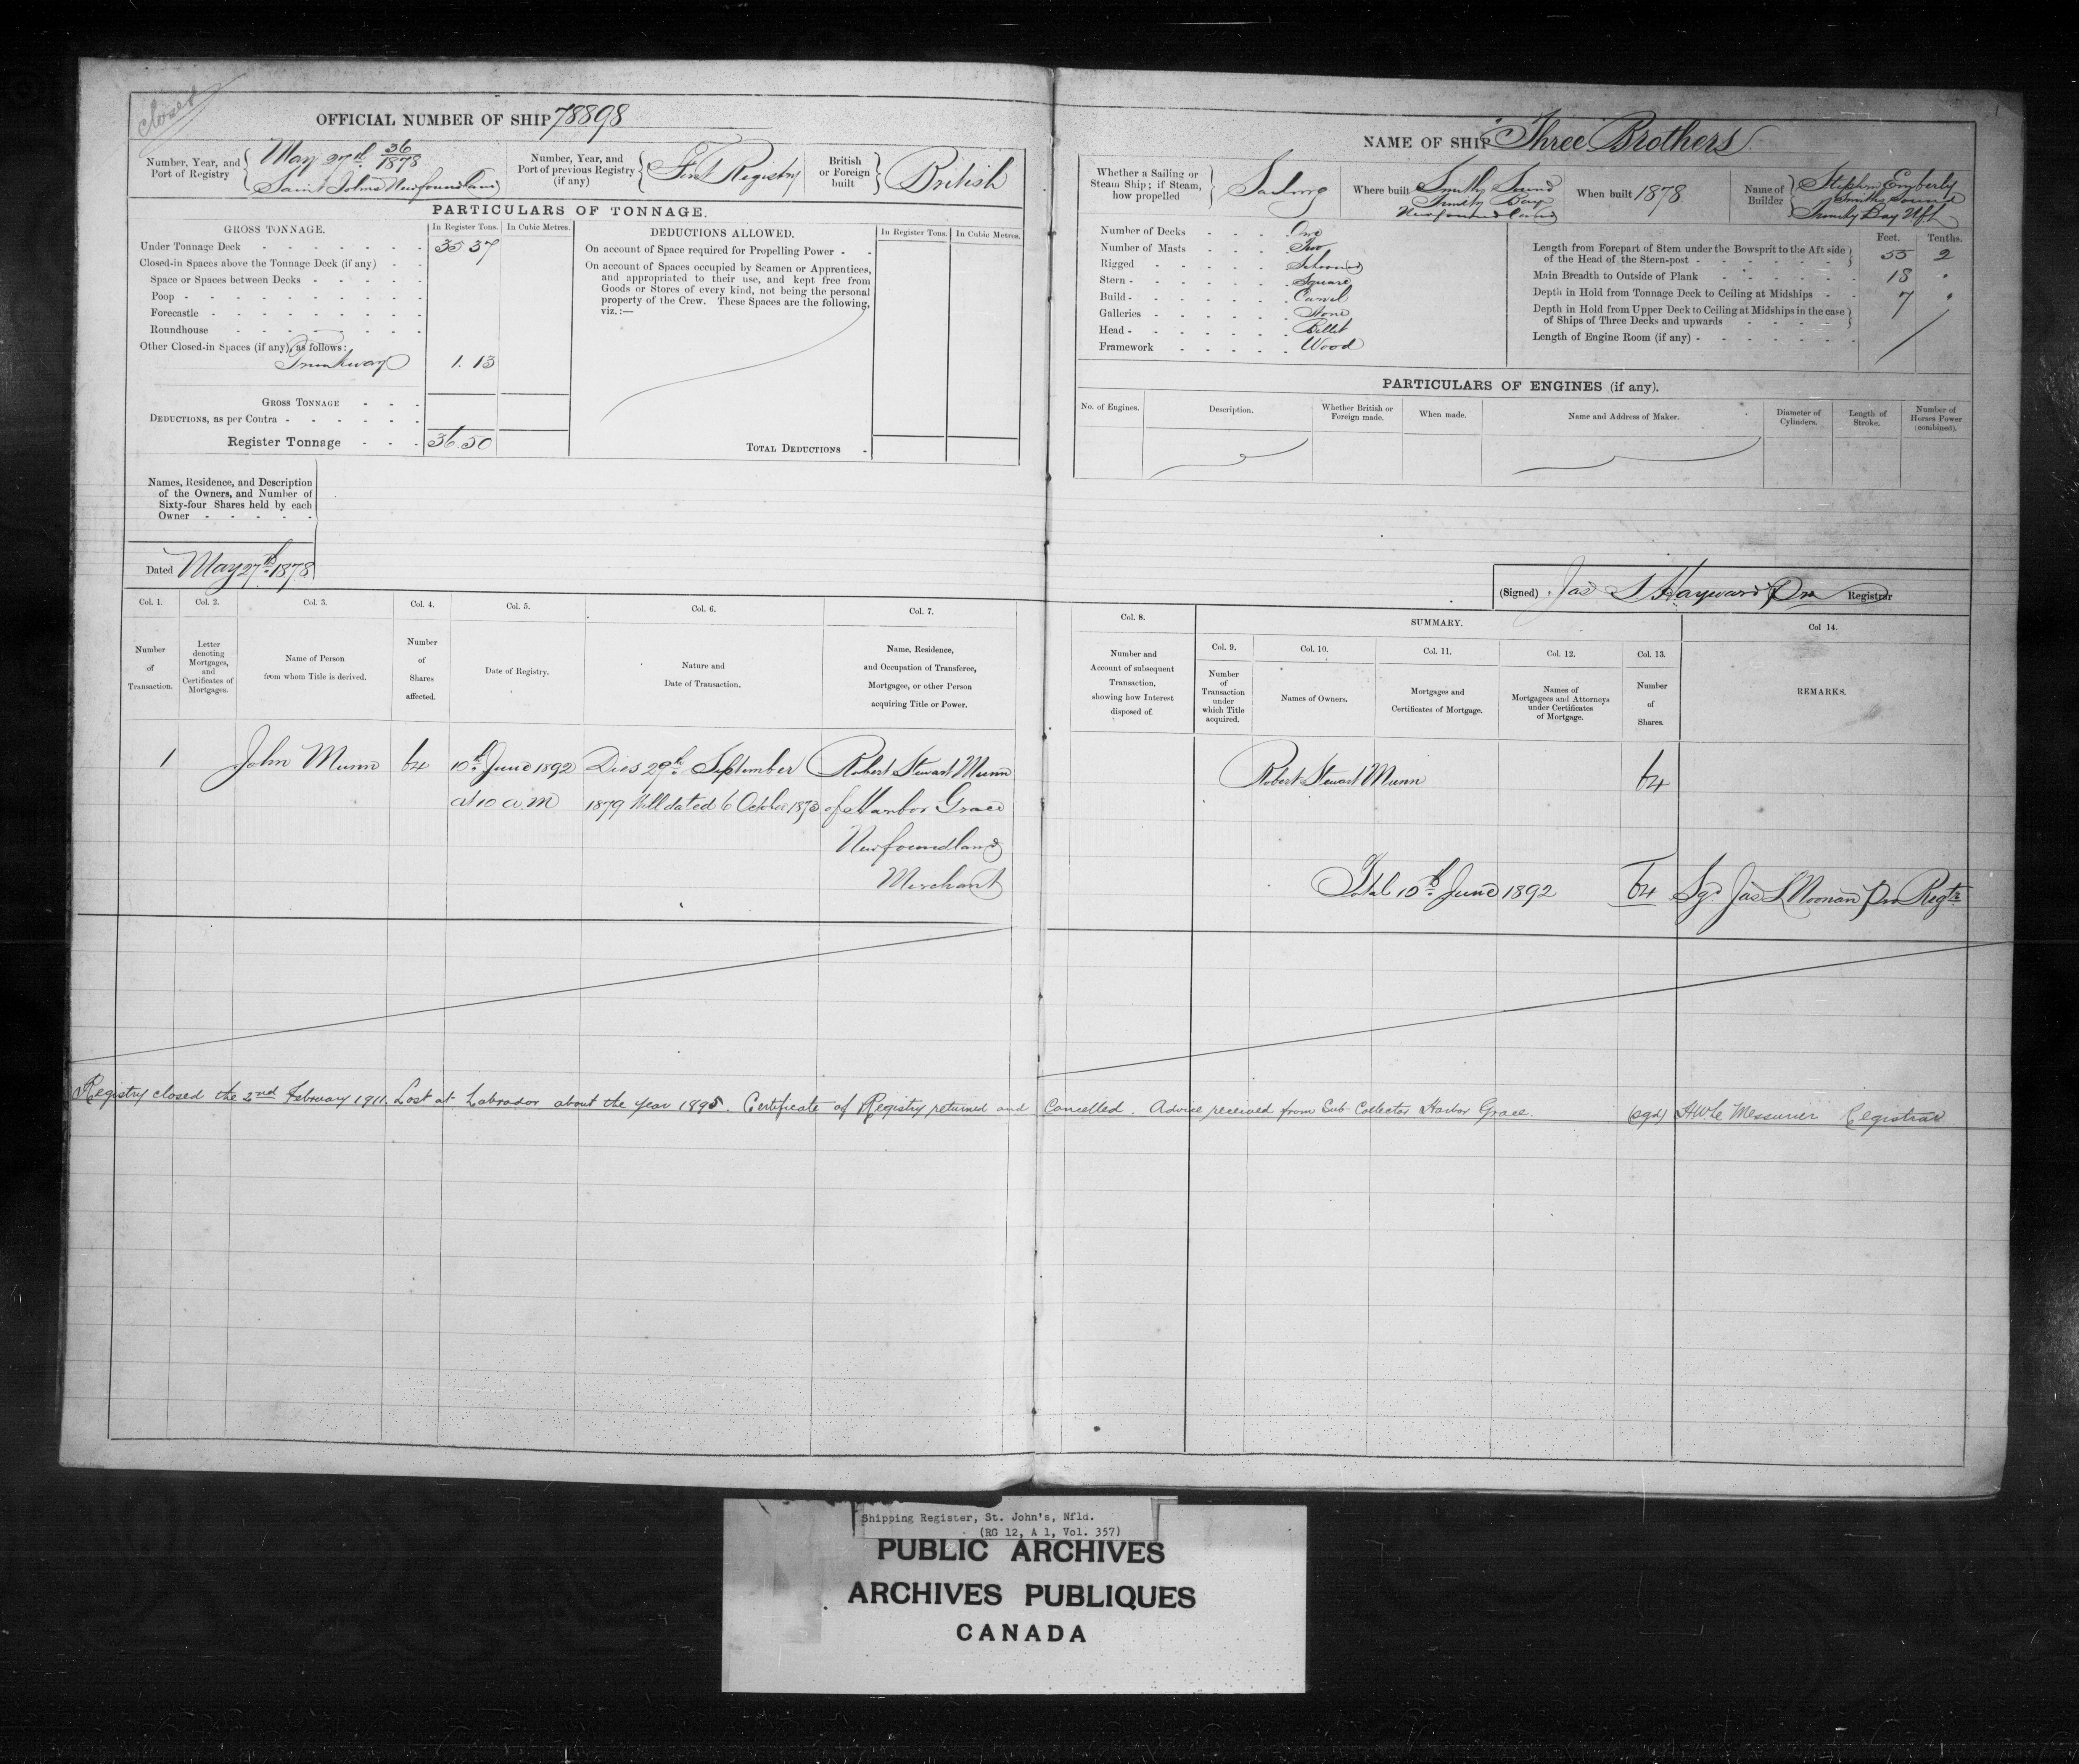 closed
OFFICIAL NUMBER OF SHIP 78898
Number, Year, and Port of Registry
May 27th 36/1878
Saint Johns Newfoundland
Number, Year, and Port of previous Registry (if any)
First Registry
British or Foreign built
British
PARTICULARS OF TONNAGE.
GROSS TONNAGE.
In Register Tons.
In Cubic Metres.
Under Tonnage Deck 35 37
Closed-in Spaces above the Tonnage Deck (if any)
Space or Spaces between Decks
Poop
Forecastle
Roundhouse
Other Closed-in Spaces (if any), as follows:
Trunkway 1. 13
GROSS TONNAGE
DEDUCTIONS, as per Contra
Register Tonnage 36.50
DEDUCTIONS ALLOWED.
In Register Tons.
In Cubic Metres.
On account of Space required for Propelling Power
On account of Spaces occupied by Seamen or Apprentices,
and appropriated to their use, and kept free from
Goods or Stores of every kind, not being the personal
property of the Crew. These Spaces are the following,
viz.:—
TOTAL DEDUCTIONS
Names, Residence, and Description
of the Owners, and Number of
Sixty-four Shares held by each
Owner
Dated May 27th 1878
NAME OF SHIP Three Brothers
Whether a Sailing or
Steam Ship; if Steam,
how propelled
Sailing
Where built Smiths Sound
Trinity Bay
Newfoundland
When built 1878
Name of
Builder
Stephen Emberly
Smiths Sound
Trinity Bay Nfld
Number of Decks One
Number of Masts Two
Rigged Schooner
Stern Square
Build Carvel
Galleries None
Head Billet
Framework Wood
Feet. Tenths.
Length from Forepart of Stem under the Bowsprit to the Aft side
of the Head of the Stern-post 55 2
Main Breadth to Outside of Plank 18 "
Depth in Hold from Tonnage Deck to Ceiling at Midships 7 "
Depth in Hold from Upper Deck to Ceiling at Midships in the case
of Ships of Three Decks and upwards
Length of Engine Room (if any)
PARTICULARS OF ENGINES (if any).
No. of Engines.
Description.
Whether British or Foreign made.
When made.
Name and Address of Maker.
Diameter of Cylinders.
Length of Stroke.
Number of Horses Power (combined).
(Signed) Jas S Hayward Pro Registrar
Col. 1. Col. 2. Col. 3. Col. 4. Col. 5. Col. 6. Col. 7.
Number of Transaction.
Letter denoting Mortgages, and Certificates of Mortgages.
Name of Person from whom Title is derived.
Number of Shares affected.
Date of Registry.
Nature and Date of Transaction.
Name, Residence, and Occupation of Transferee, Mortgagee, or other Person acquiring Title or Power.
Col. 8.
Number and Account of subsequent Transaction, showing how Interest disposed of.
SUMMARY.
Col. 9. Col. 10. Col. 11. Col. 12. Col. 13.
Number of Transaction under which Title acquired.
Names of Owners.
Mortgages and Certificates of Mortgage.
Names of Mortgagees and Attorneys under Certificates of Mortgage.
Number of Shares.
Col 14.
REMARKS.
1 John Munn 64 10th June 1892 Dies 29th September Robert Stewart Munn
at 10 a.m 1879 Will dated 6 October 1873 of Harbor Grace
Newfoundland
Merchant
Robert Stewart Munn 64
Total 10th June 1892 64 Sgd Jas L Noonan Pro Regtr
Registry closed the 2nd February 1911. Lost at Labrador about the year 1895. Certificate of Registry returned and Cancelled. Advice received from Sub-Collector Harbor Grace. (sgd) H W Le Messurier Registrar
Shipping Register, St. John's, Nfld.
(RG 12, A 1, Vol. 357)
PUBLIC ARCHIVES
ARCHIVES PUBLIQUES
CANADA